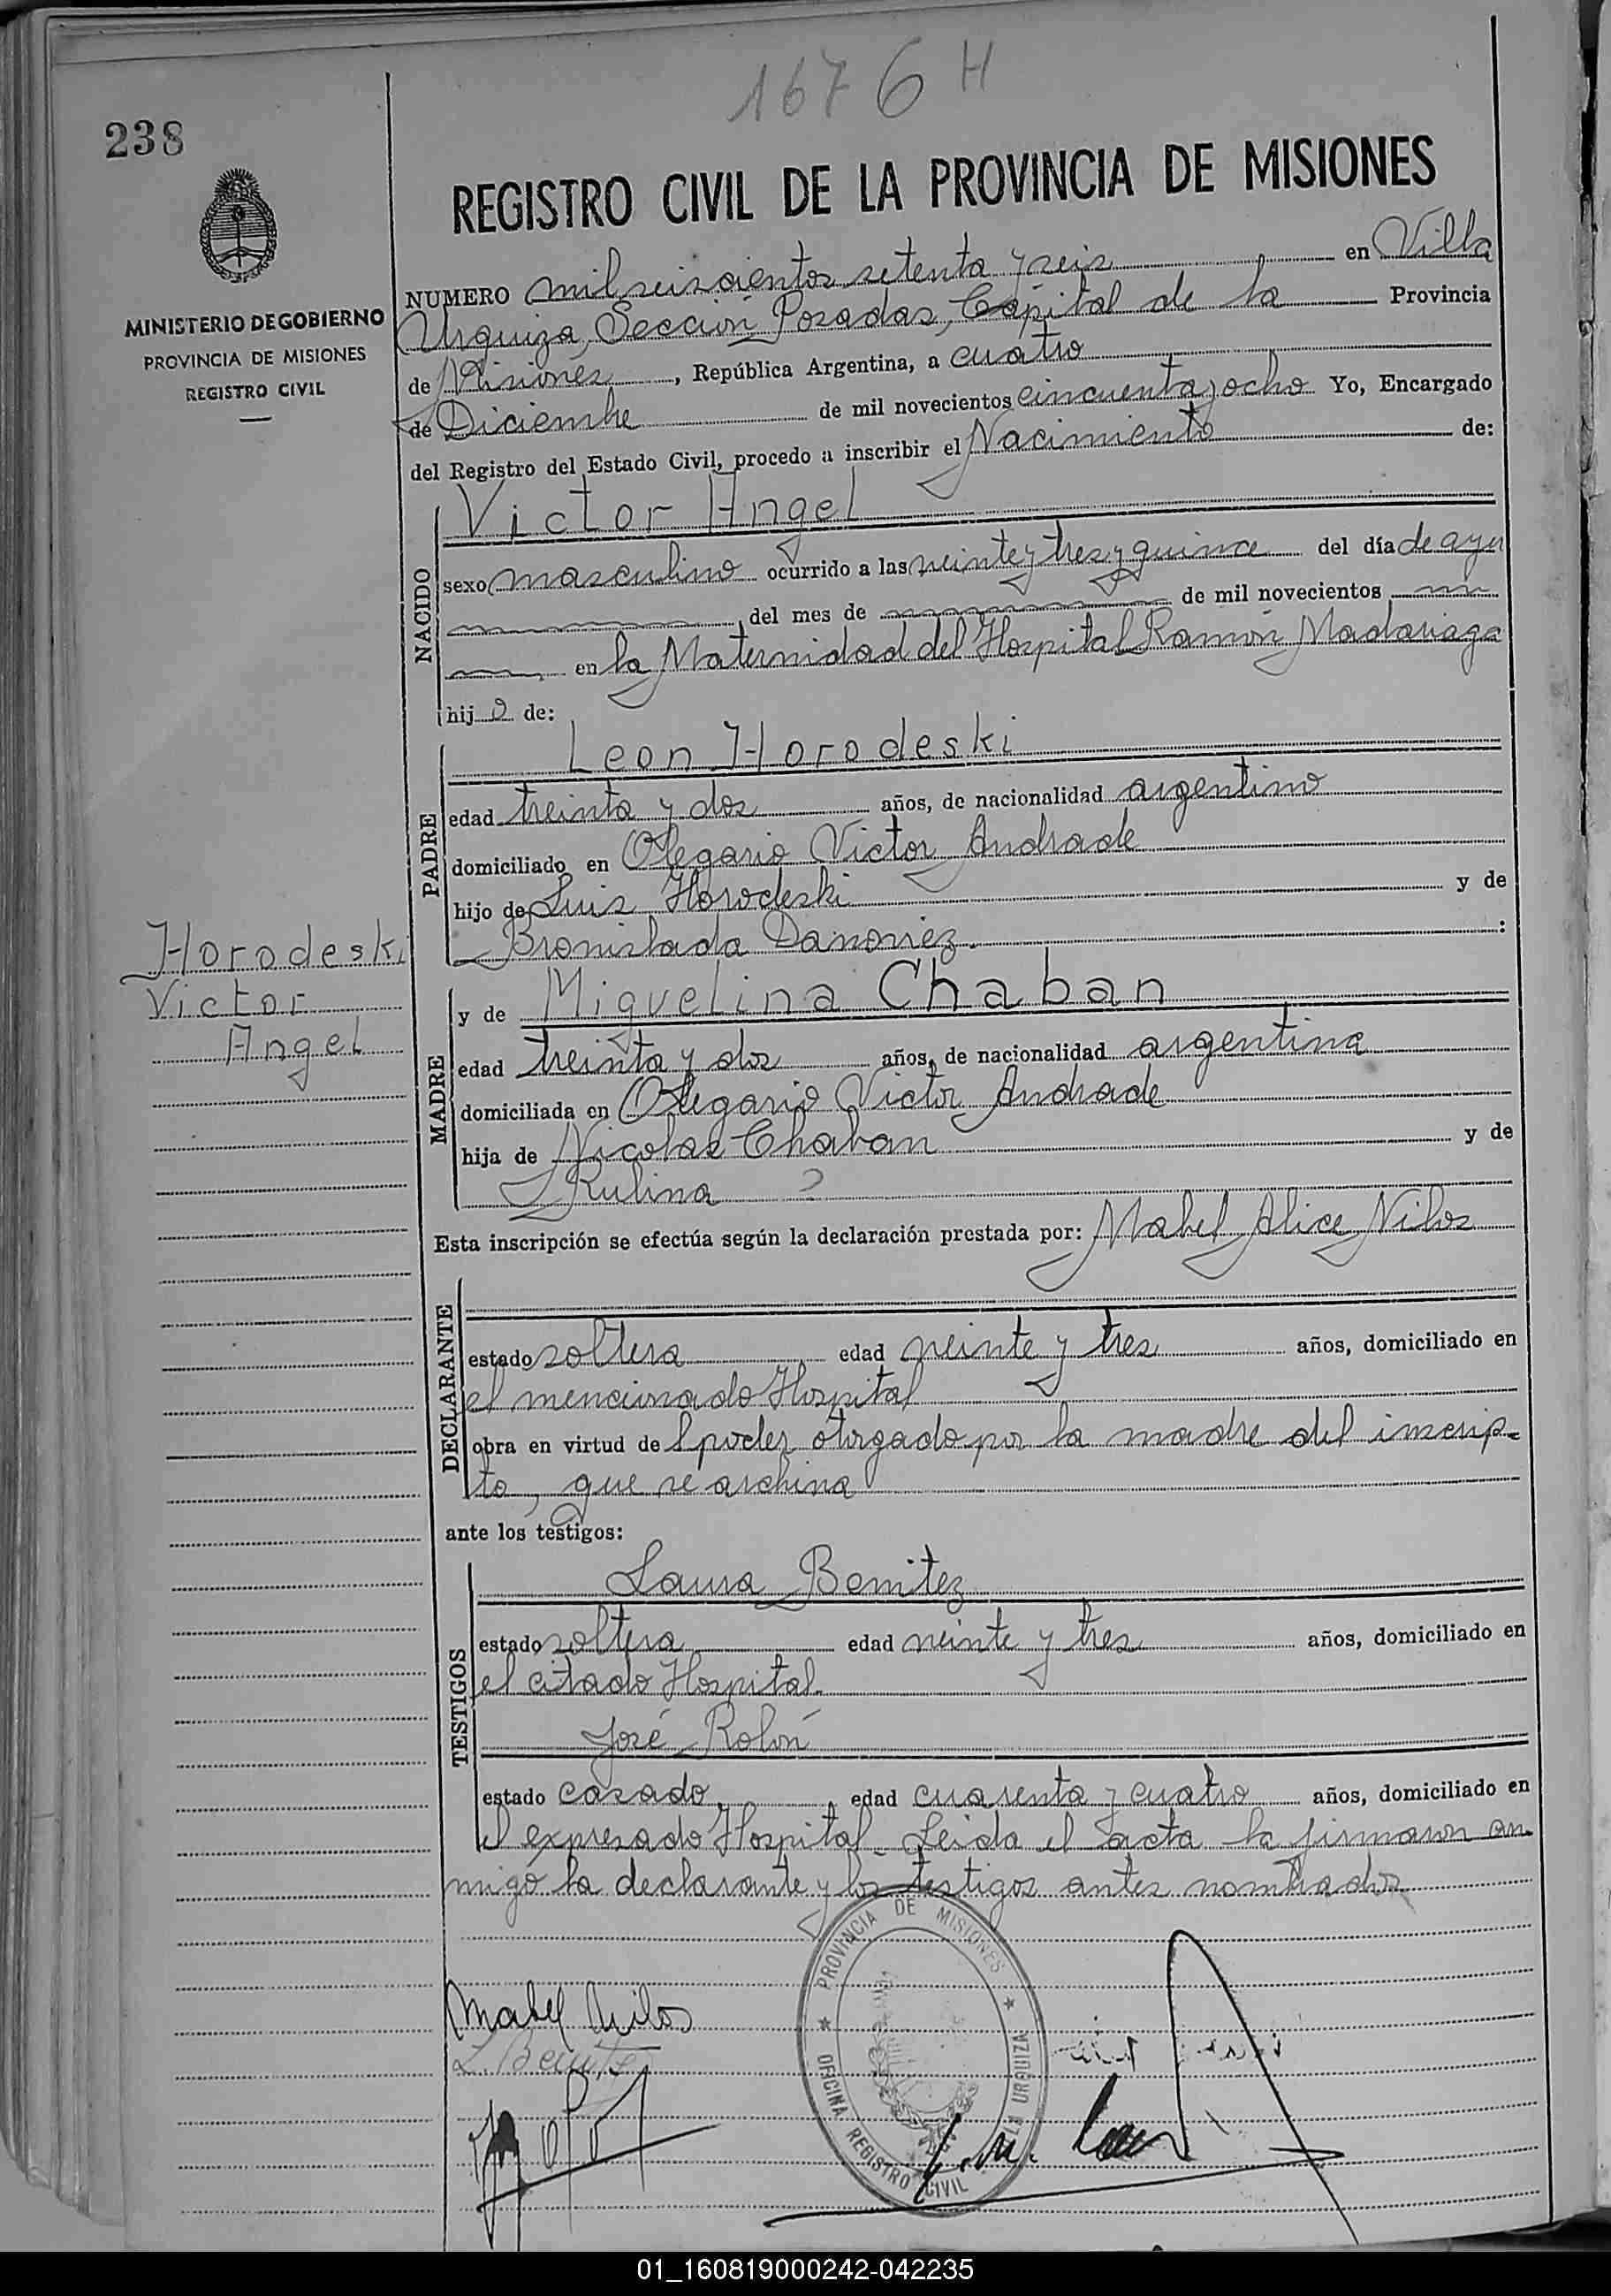 1676 H
238
REGISTRO CIVIL DE LA PROVINCIA DE MISIONES
MINISTERIO DE GOBIERNO
PROVINCIA DE MISIONES
REGISTRO CIVIL
NUMERO mil seiscientos setenta y seis en Villa
Urquiza, Sección Posadas, Capital de la Provincia
de Misiones, República Argentina, a cuatro
de Diciembre de mil novecientos cincuenta y ocho Yo, Encargado
del Registro del Estado Civil, procedo a inscribir el Nacimiento de:
NACIDO
Victor Angel
sexo masculino ocurrido a las veinte y tres y quince del día de ayer
del mes de de mil novecientos
en la Maternidad del Hospital Ramón Madariaga
hijo de:
PADRE
Leon Horodeski
edad treinta y dos años, de nacionalidad argentino
domiciliado en Olegario Victor Andrade
hijo de Luis Horodeski y de
Bronislada Danoviez. :
Horodeski
Victor
Angel
MADRE
y de Miguelina Chaban
edad treinta y dos años, de nacionalidad argentina
domiciliada en Olegario Victor Andrade
hija de Nicolas Chaban y de
Rulina ?
Esta inscripción se efectúa según la declaración prestada por: Mabel Alice Nilos
DECLARANTE
estado soltera edad veinte y tres años, domiciliado en
el mencionado Hospital
obra en virtud del poder otorgado por la madre del inscrip-
to, que se archiva
ante los testigos:
TESTIGOS
Laura Benitez
estado soltera edad veinte y tres años, domiciliado en
el citado Hospital.
José Rolón
estado casado, edad cuarenta y cuatro años, domiciliado en
el expresado Hospital. Leida el acta la firmaron con
migo la declarante y los testigos antes nombrados
Mabel Nilos
L. Benitez
PROVINCIA DE MISIONES
OFICINA REGISTRO CIVIL
URQUIZA
01_160819000242-042235